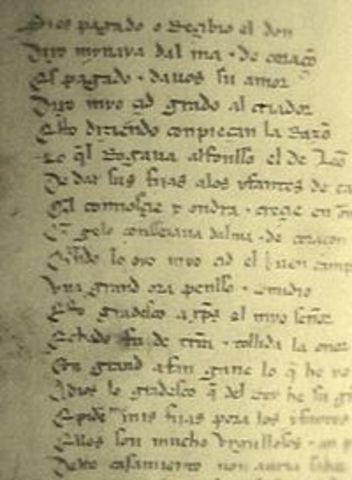 Si es pagado o Reçibio el don
Dixo mynaya dal ma · de coraço
Es pagado · dauos su amor
Dixo myo çid grado al criador
Esto diziendo conpieçan la Razo
Lo q̃l Rogaua alfonsso el de Leo
De dar sus fijas alos yfantes de ca
Q̃l connosçie y ondra · creçie en on
Q̃ gelo conseiaua dalma · de coraçon
Quãdo lo oyo myo çid el buen camp
Vna grand ora pensso · comidio
Esto gradesco a xp̃s el myo señor
Echado fu de trr̃a · tollida la onor
Con grand afan gane lo q̃ he yo
A dios lo gradesco q̃ del Rey he su gr
E piden mis fijas pora los yfantes
Ellos son mucho vrgullosos · an p
Deste casamiento non auria sabor